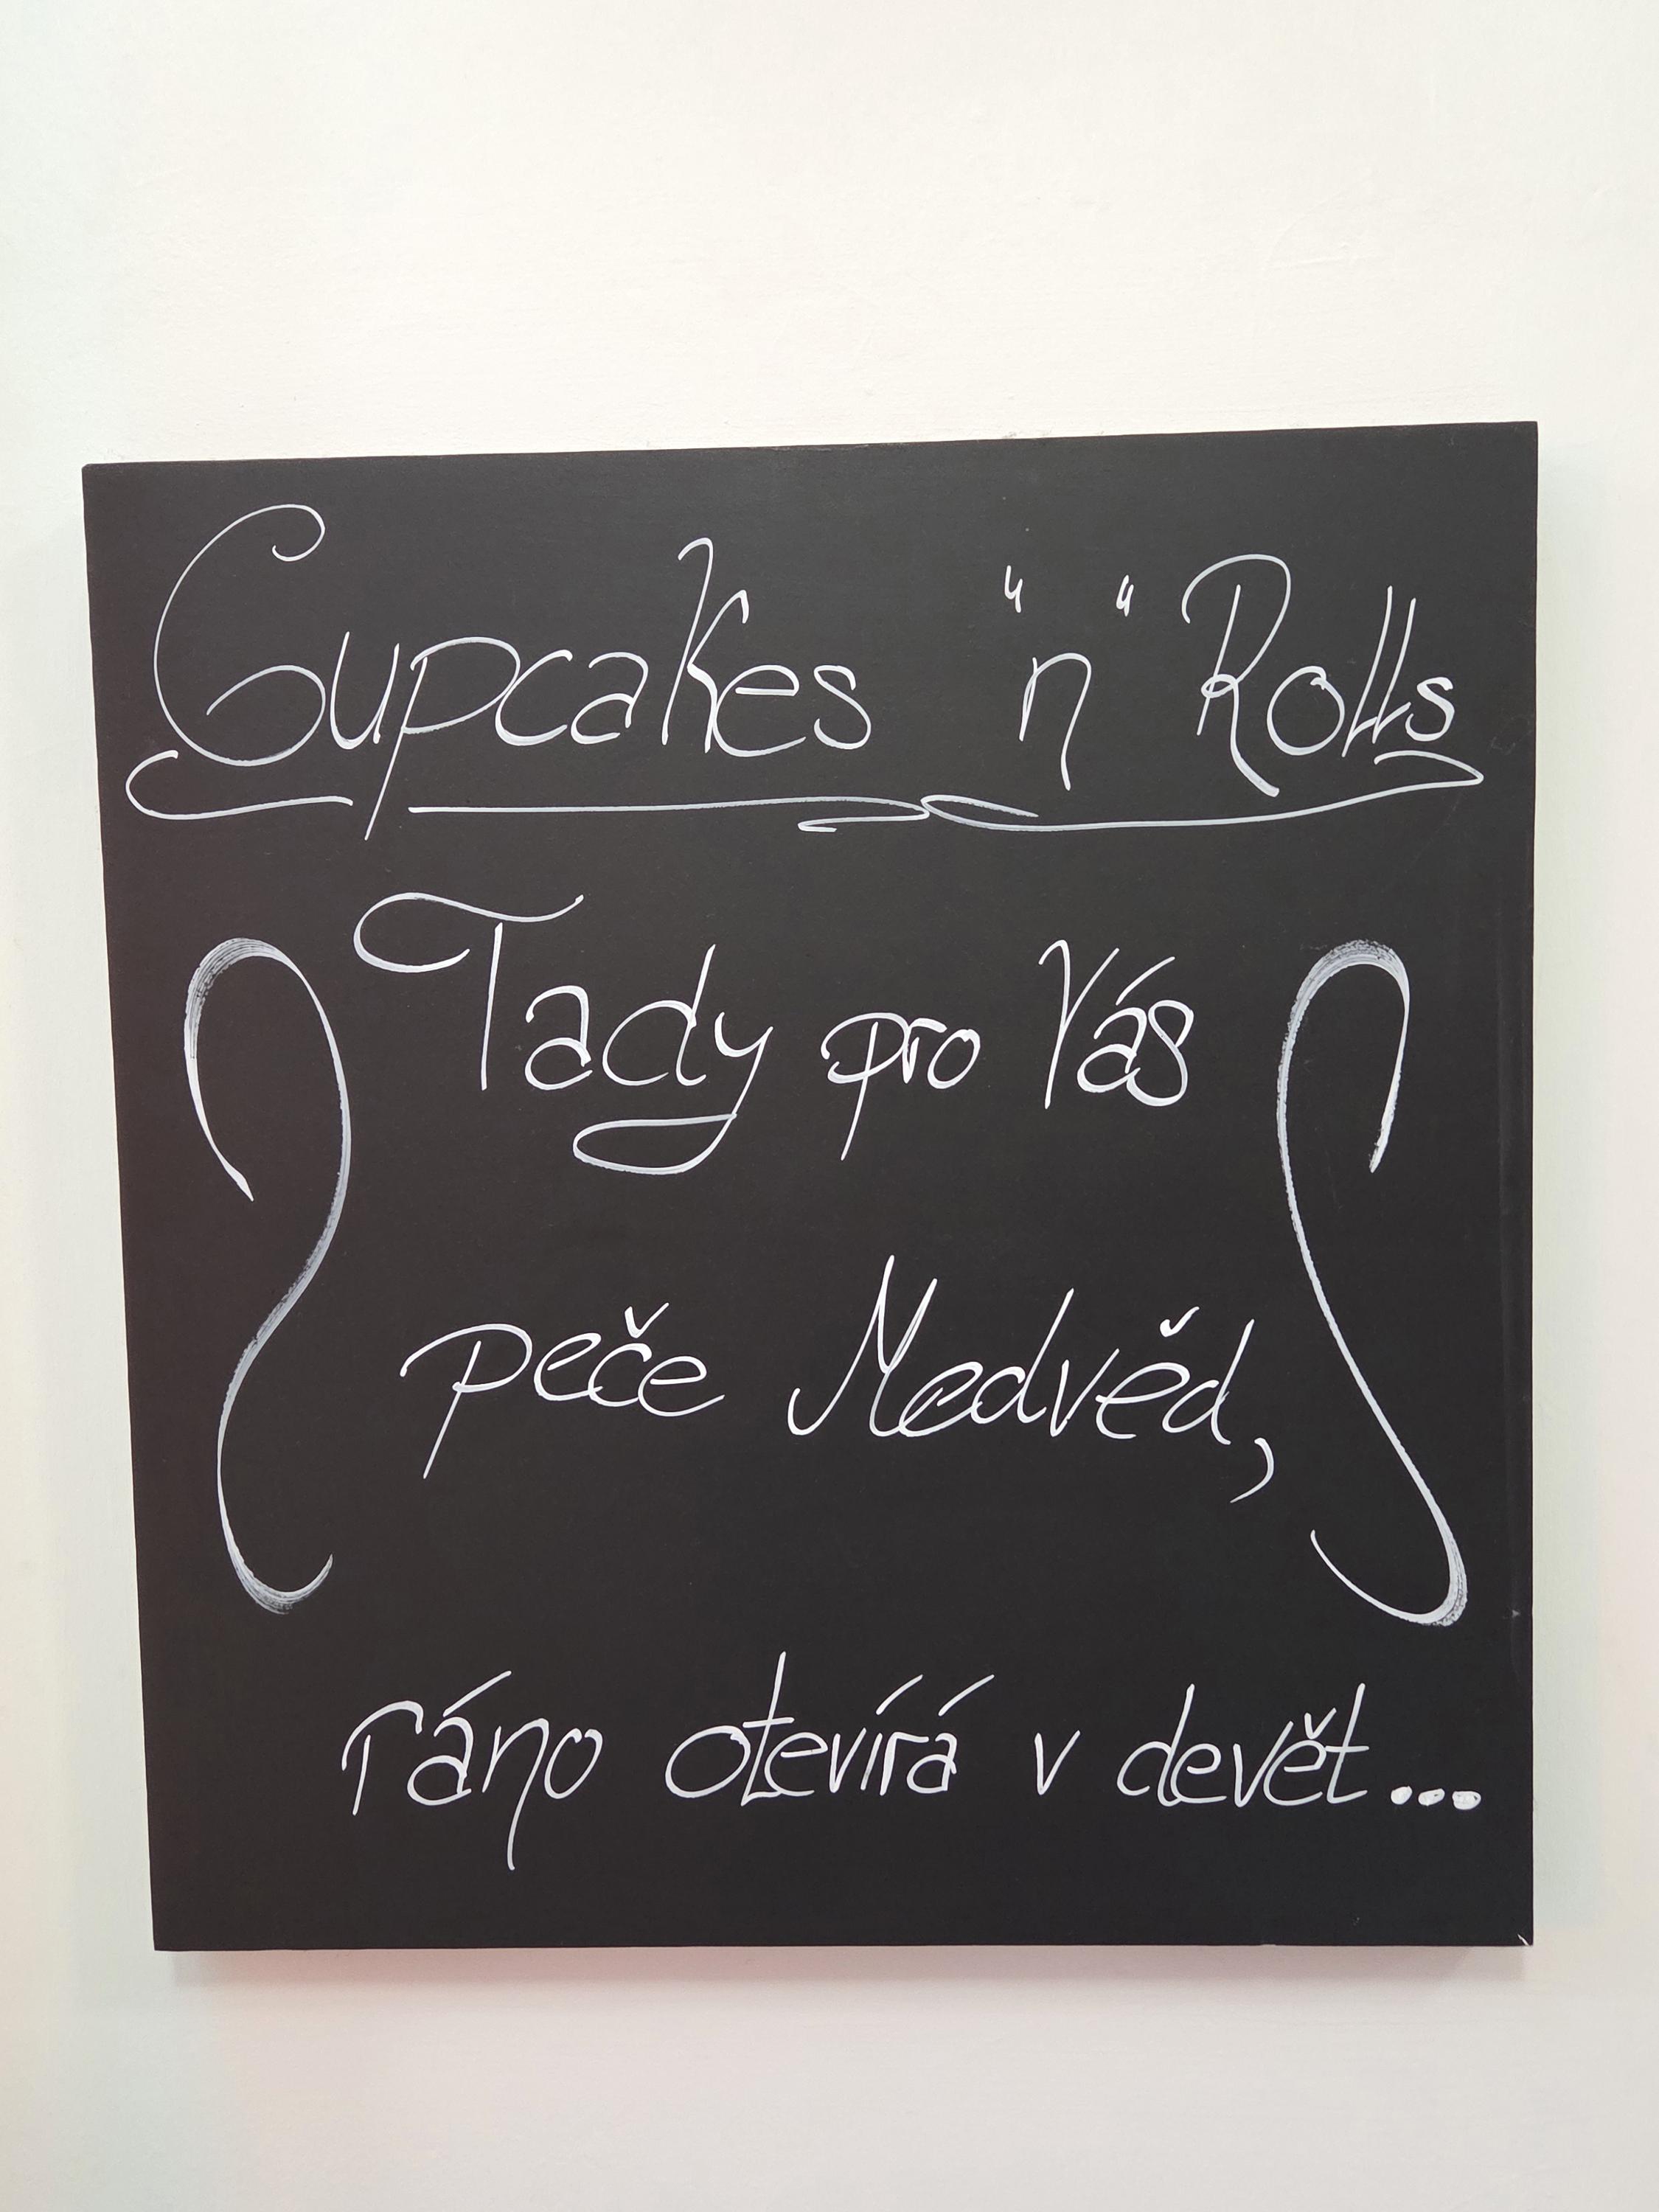 Cupakes "n" Rolls
Tady pro Vás
peče Medvěd,
ráno otevírá v devět...